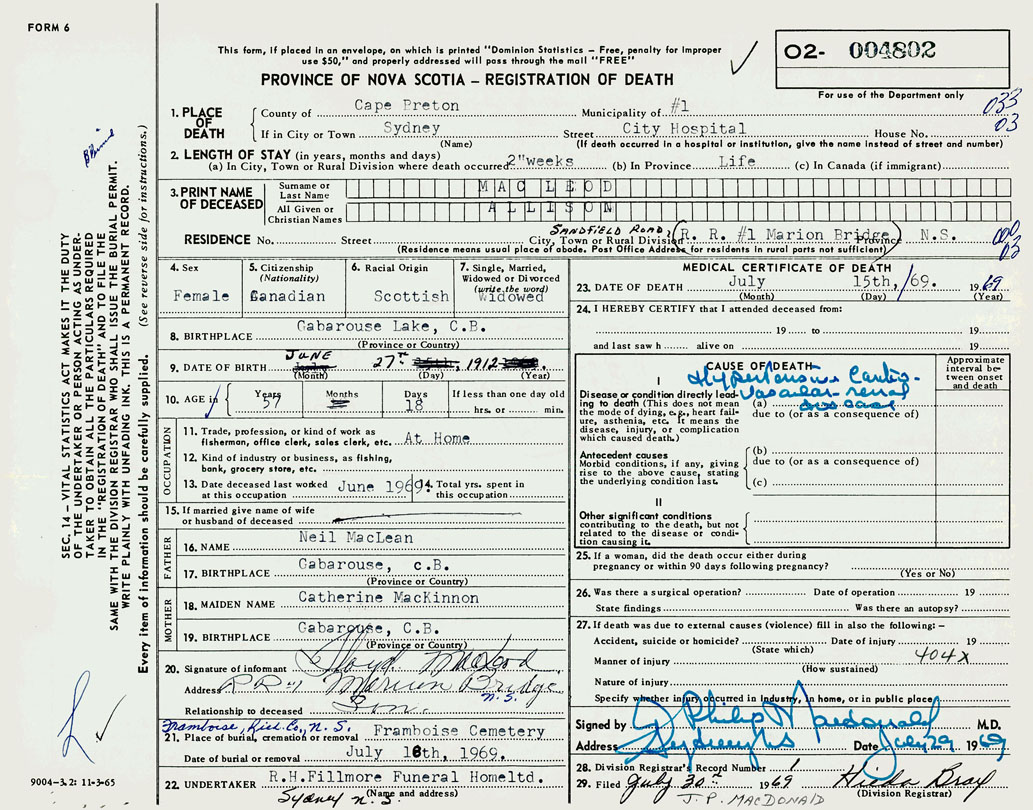 FORM 6
This form, if placed in an envelope, on which is printed "Dominion Statistics – Free, penalty for improper
use $50," and properly addressed will pass through the mail "FREE"
O2- 004802
PROVINCE OF NOVA SCOTIA – REGISTRATION OF DEATH
For use of the Department only
033
03
1. PLACE OF DEATH
County of Cape Breton Municipality of #1
If in City or Town Sydney Street City Hospital House No.
(Name) (If death occurred in a hospital or institution, give the name instead of street and number)
2. LENGTH OF STAY (in years, months and days)
(a) In City, Town or Rural Division where death occurred 2"weeks (b) In Province Life (c) In Canada (if immigrant)
3. PRINT NAME OF DECEASED
Surname or Last Name MACLEOD
All Given or Christian Names ALLISON
SANDFIELD ROAD,
RESIDENCE No. Street City, Town or Rural Division R. R. #1 Marion Bridge Province N.S.
(Residence means usual place of abode. Post Office Address for residents in rural parts not sufficient)
03
4. Sex
Female
5. Citizenship (Nationality)
Canadian
6. Racial Origin
Scottish
7. Single, Married, Widowed or Divorced (write the word)
Widowed
8. BIRTHPLACE Gabarouse Lake, C.B.
(Province or Country)
9. DATE OF BIRTH JUNE 27TH 1912
(Month) (Day) (Year)
10. AGE in Years 57 Months Days 18 If less than one day old hrs. or min.
OCCUPATION
11. Trade, profession, or kind of work as
fisherman, office clerk, sales clerk, etc. At Home
12. Kind of industry or business, as fishing,
bank, grocery store, etc.
13. Date deceased last worked at this occupation June 1969
14. Total yrs. spent in this occupation
15. If married give name of wife
or husband of deceased
FATHER
16. NAME Neil MacLean
17. BIRTHPLACE Gabarouse, c.B.
(Province or Country)
MOTHER
18. MAIDEN NAME Catherine MacKinnon
19. BIRTHPLACE Gabarouse, C.B.
(Province or Country)
20. Signature of informant Lloyd MacLeod
Address RR #1 Marion Bridge
N.S.
Relationship to deceased Son.
Framboise, Rich. Co., N.S.
21. Place of burial, cremation or removal Framboise Cemetery
Date of burial or removal July 18th, 1969.
22. UNDERTAKER R.H.Fillmore Funeral Homeltd.
(Name and address)
Sydney N.S.
MEDICAL CERTIFICATE OF DEATH
23. DATE OF DEATH July 15th, /69. 19 69
(Month) (Day) (Year)
24. I HEREBY CERTIFY that I attended deceased from:
19 to 19
and last saw h alive on 19
CAUSE OF DEATH
Approximate interval between onset and death
I
Hypertensive Cardio-
Vascular-renal
disease
Disease or condition directly leading to death (This does not mean the mode of dying, e.g., heart failure, asthenia, etc. It means the disease, injury, or complication which caused death.)
(a)
due to (or as a consequence of)
Antecedent causes
Morbid conditions, if any, giving rise to the above cause, stating the underlying condition last.
(b)
due to (or as a consequence of)
(c)
II
Other significant conditions
contributing to the death, but not related to the disease or condition causing it.
25. If a woman, did the death occur either during
pregnancy or within 90 days following pregnancy?
(Yes or No)
26. Was there a surgical operation? Date of operation 19
State findings Was there an autopsy?
27. If death was due to external causes (violence) fill in also the following: –
Accident, suicide or homicide? Date of injury 19
(State which)
404X
Manner of injury
(How sustained)
Nature of injury
Specify whether injury occurred in Industry, in home, or in public place
Signed by J Philip Macdonald M.D.
Address Sydney NS Date July 29 1969
28. Division Registrar's Record Number 1
29. Filed July 30th 1969 Hilda Bray
(Division Registrar)
J. P. MACDONALD
SEC. 14 – VITAL STATISTICS ACT MAKES IT THE DUTY
OF THE UNDERTAKER OR PERSON ACTING AS UNDER-
TAKER TO OBTAIN ALL THE PARTICULARS REQUIRED
IN THE "REGISTRATION OF DEATH" AND TO FILE THE
SAME WITH THE DIVISION REGISTRAR WHO SHALL ISSUE THE BURIAL PERMIT.
WRITE PLAINLY WITH UNFADING INK. THIS IS A PERMANENT RECORD.
Every item of information should be carefully supplied. (See reverse side for instructions.)
9004-3.2: 11-3-65